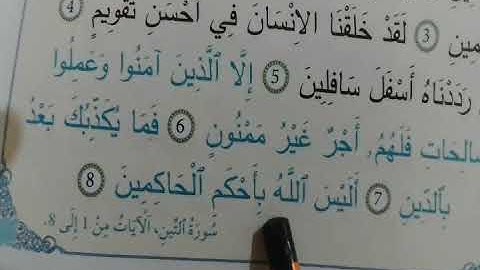 مِينِ 3 لَقَدْ خَلَقْنَا الْاِنْسَانَ فِي أَحْسَنِ تَقْوِيمٍ 4
رَدَدْنَاهُ أَسْفَلَ سَافِلِينَ 5 إِلَّا ٱلَّذِينَ آمَنُوا وَعَمِلُوا
صَالِحَاتِ فَلَهُمُ, أَجْرٌ غَيْرُ مَمْنُونٍ 6 فَمَا يُكَذِّبُكَ بَعْدُ
بِٱلدِّينِ 7 أَلَيْسَ ٱللَّهُ بِأَحْكَمِ ٱلْحَاكِمِينَ 8
سُورَةُ ٱلتِّينِ، ٱلْآيَاتُ مِنْ 1 إِلَى 8.